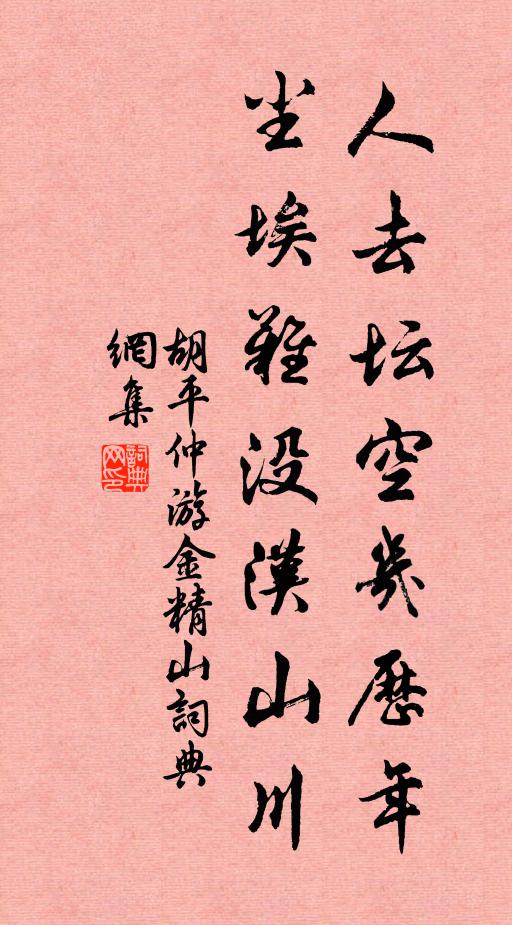 人去坛空几历年
尘埃难没汉山川
胡平仲游金精山詞典
網集
詞典网印